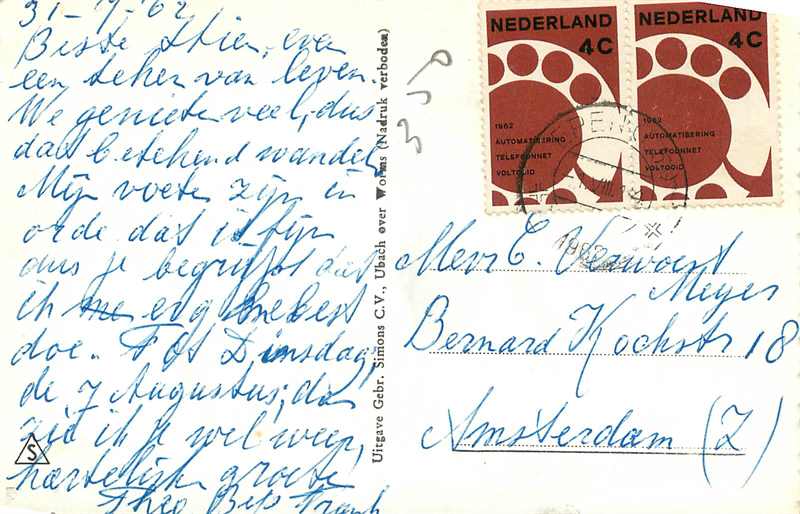 31-7-62
Beste Stien, even
een teken van leven.
We genieten veel, dus
dat betekend wandel
Mijn voeten zijn in
orde dat is fijn
dus je begrijpt dat
ik me erg me best
doe. Tot Dinsdag,
de 7 Augustus, dan
zie ik je wel weer,
hartelijke groeten
Theo Bep Frank
S
Uitgave Gebr. Simons C.V., Ubach over Worms (Nadruk verboden)
350
NEDERLAND
4C
1962
AUTOMATISERING
TELEFOONNET
VOLTOOID
NEDERLAND
4C
1962
AUTOMATISERING
TELEFOONNET
VOLTOOID
1962
Mevr C. Verwoert
Meyer
Bernard Kochstr 18
Amsterdam (Z)